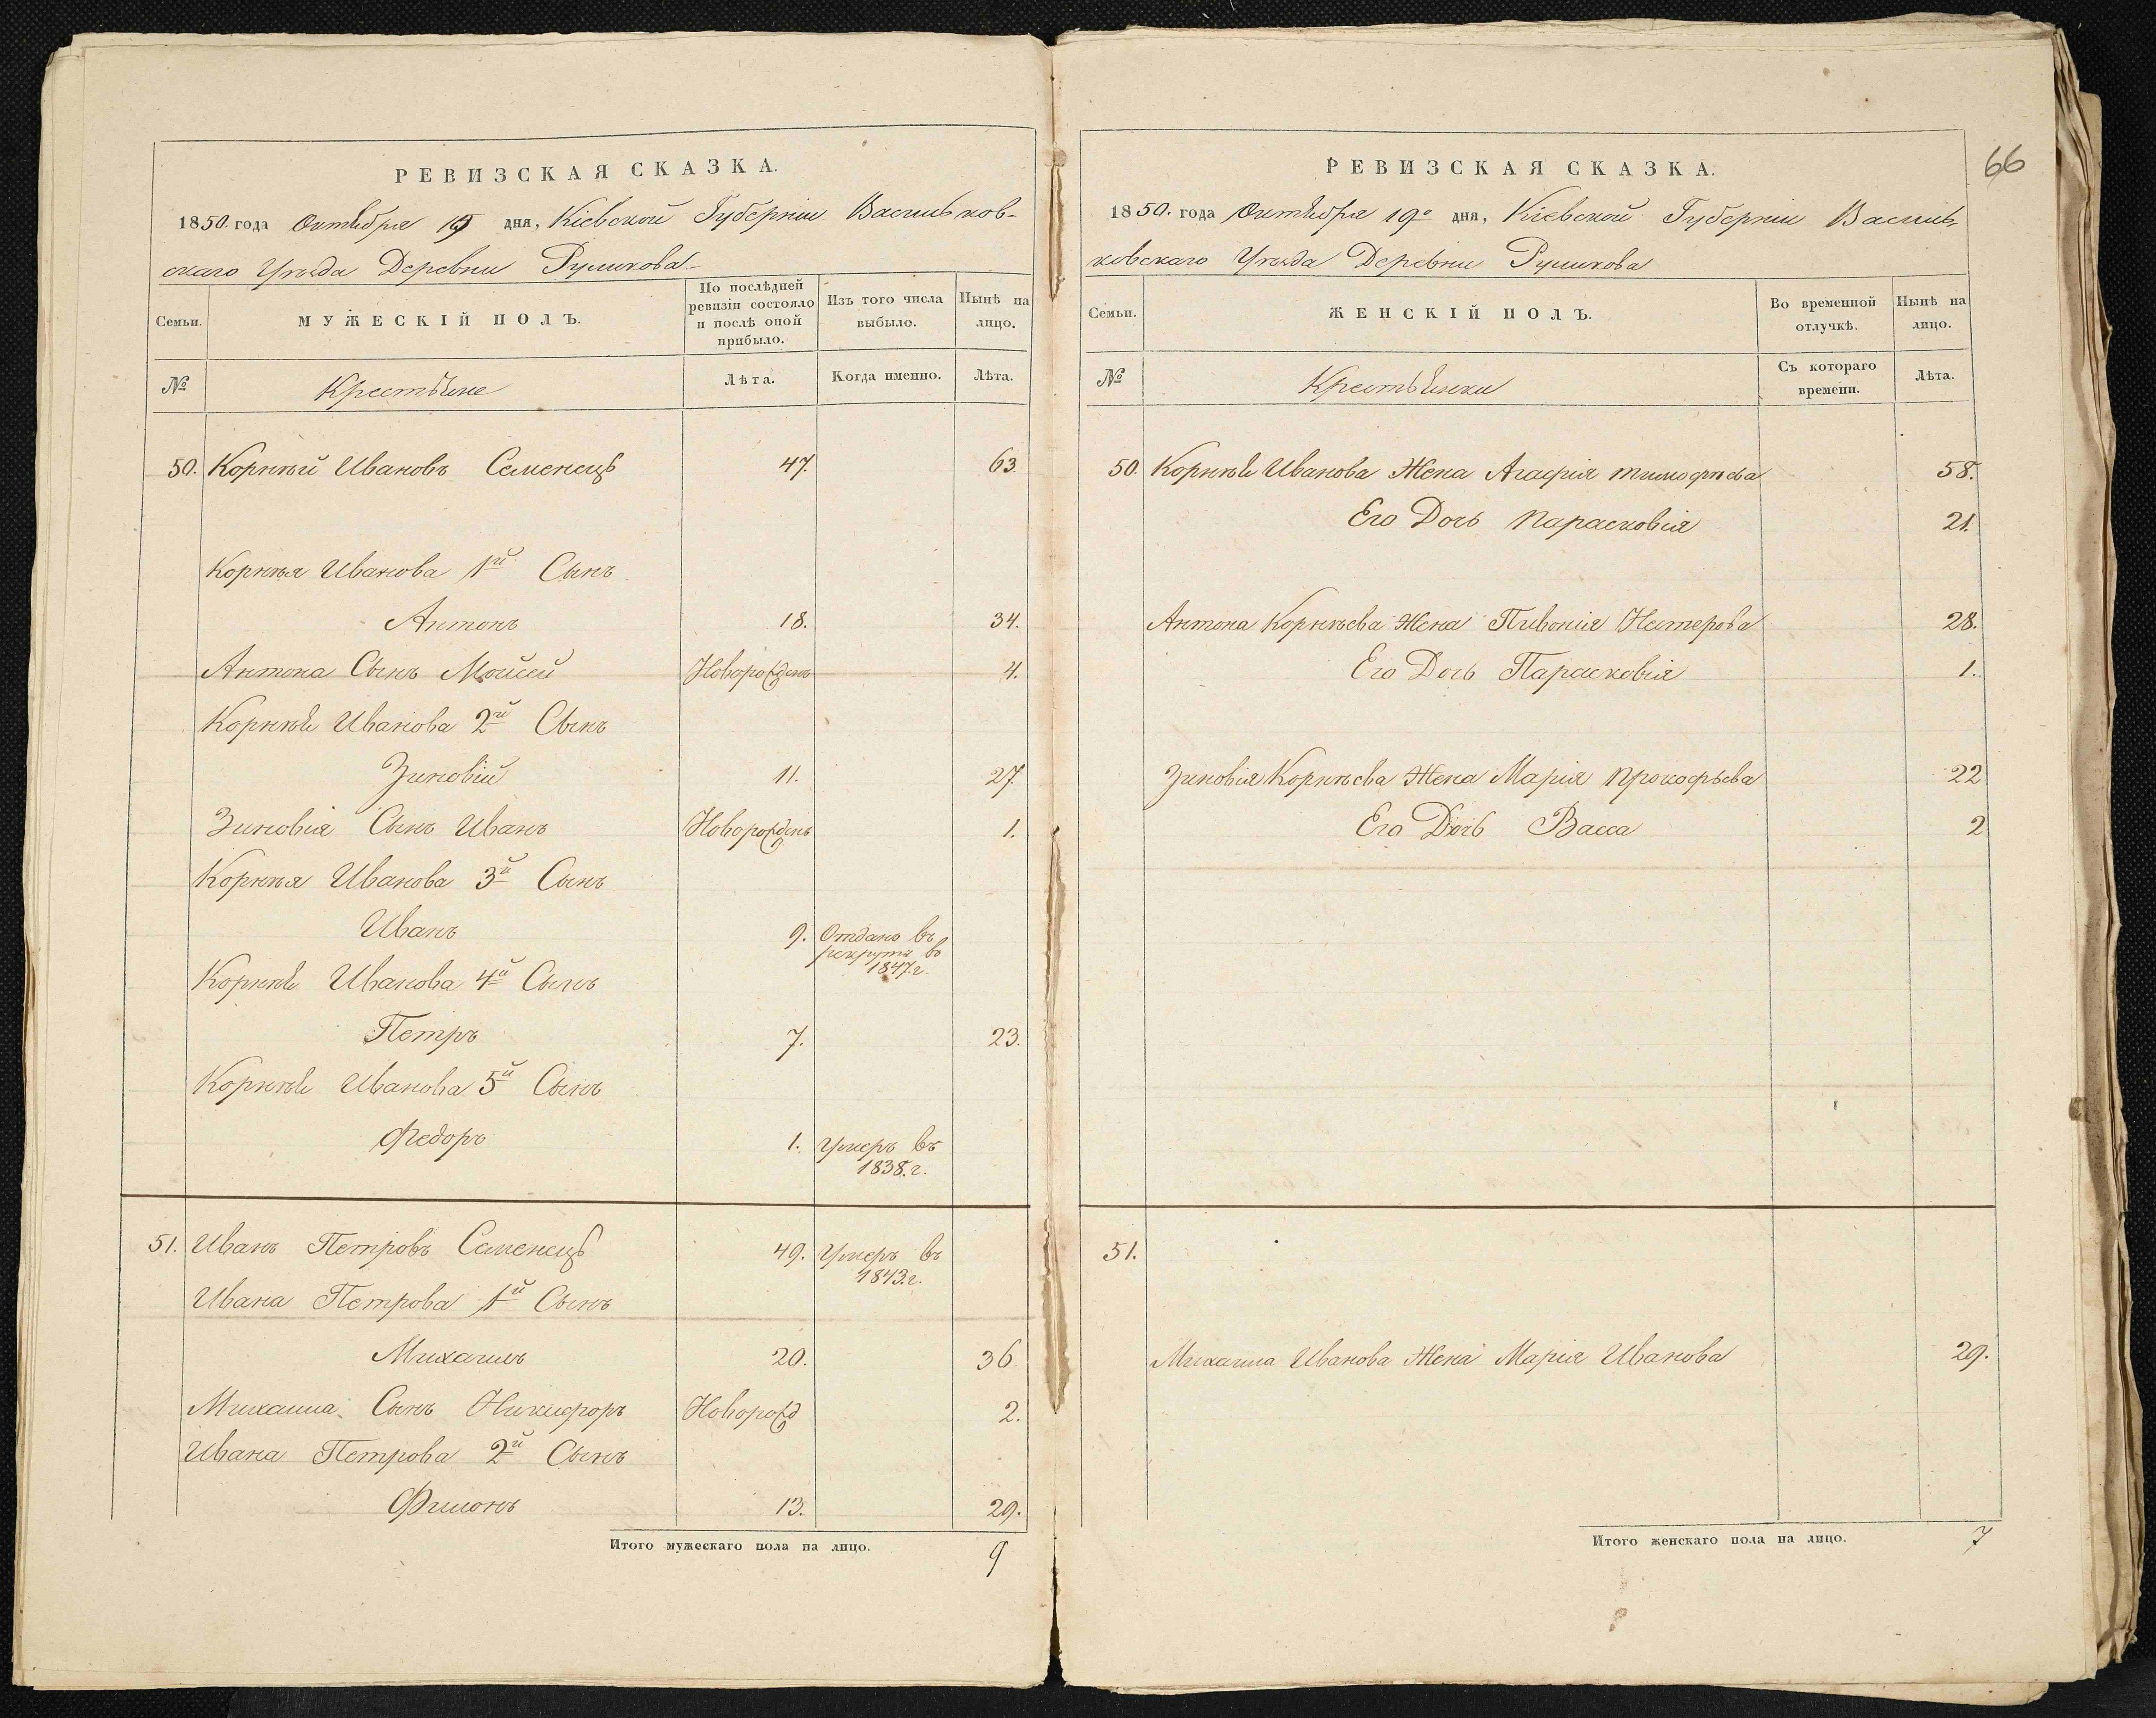 РЕВИЗСКАЯ СКАЗКА.
1850. года Октября 19 дня, Кіевской Губерніи Васильков-
скаго Уѣзда Деревни Руликова
Семьи.
МУЖЕСКІЙ ПОЛЪ.
По послѣдней ревизіи состояло и послѣ оной прибыло.
Изъ того числа выбыло.
Нынѣ на лицо.
№
Крестьяне
Лѣта.
Когда именно.
Лѣта.
50. Корнѣй Ивановъ Семенецъ 47. 63.
Корнѣя Иванова 1й Сынъ
Антонъ 18. 34.
Антона Сынъ Моисей Новорожденъ 4.
Корнѣя Иванова 2й Сынъ
Зиновій 11. 27.
Зиновія Сынъ Иванъ Новорожденъ 1.
Корнѣя Иванова 3й Сынъ
Иванъ 9. Отданъ въ
рекруты въ
1847 г.
Корнѣя Иванова 4й Сынъ
Петръ 7. 23.
Корнѣя Иванова 5й Сынъ
Федоръ 1. Умеръ въ
1838. г.
51. Иванъ Петровъ Семенецъ 49. Умеръ въ
1843. г.
Ивана Петрова 1й Сынъ
Михаилъ 20. 36
Михаила Сынъ Никифоръ Новорожд 2.
Ивана Петрова 2й Сынъ
Филонъ 13. 29.
Итого мужескаго пола на лицо. 9
66
РЕВИЗСКАЯ СКАЗКА.
1850. года Октября 19го дня, Кіевской Губерніи Василь-
ковскаго Уѣзда Деревни Руликова
Семьи.
ЖЕНСКІЙ ПОЛЪ.
Во временной отлучкѣ.
Нынѣ на лицо.
№
Крестьянки
Съ котораго времени.
Лѣта.
50. Корнѣя Иванова Жена Агафія Тимофѣева 58.
Его Дочь Парасковія 21.
Антона Корнѣева Жена Пивонія Нестерова 28.
Его Дочь Парасковія 1.
Зиновія Корнѣева Жена Марія Прокофьева 22
Его Дочь Васса 2
51.
Михаила Иванова Жена Марія Иванова 29.
Итого женскаго пола на лицо. 7